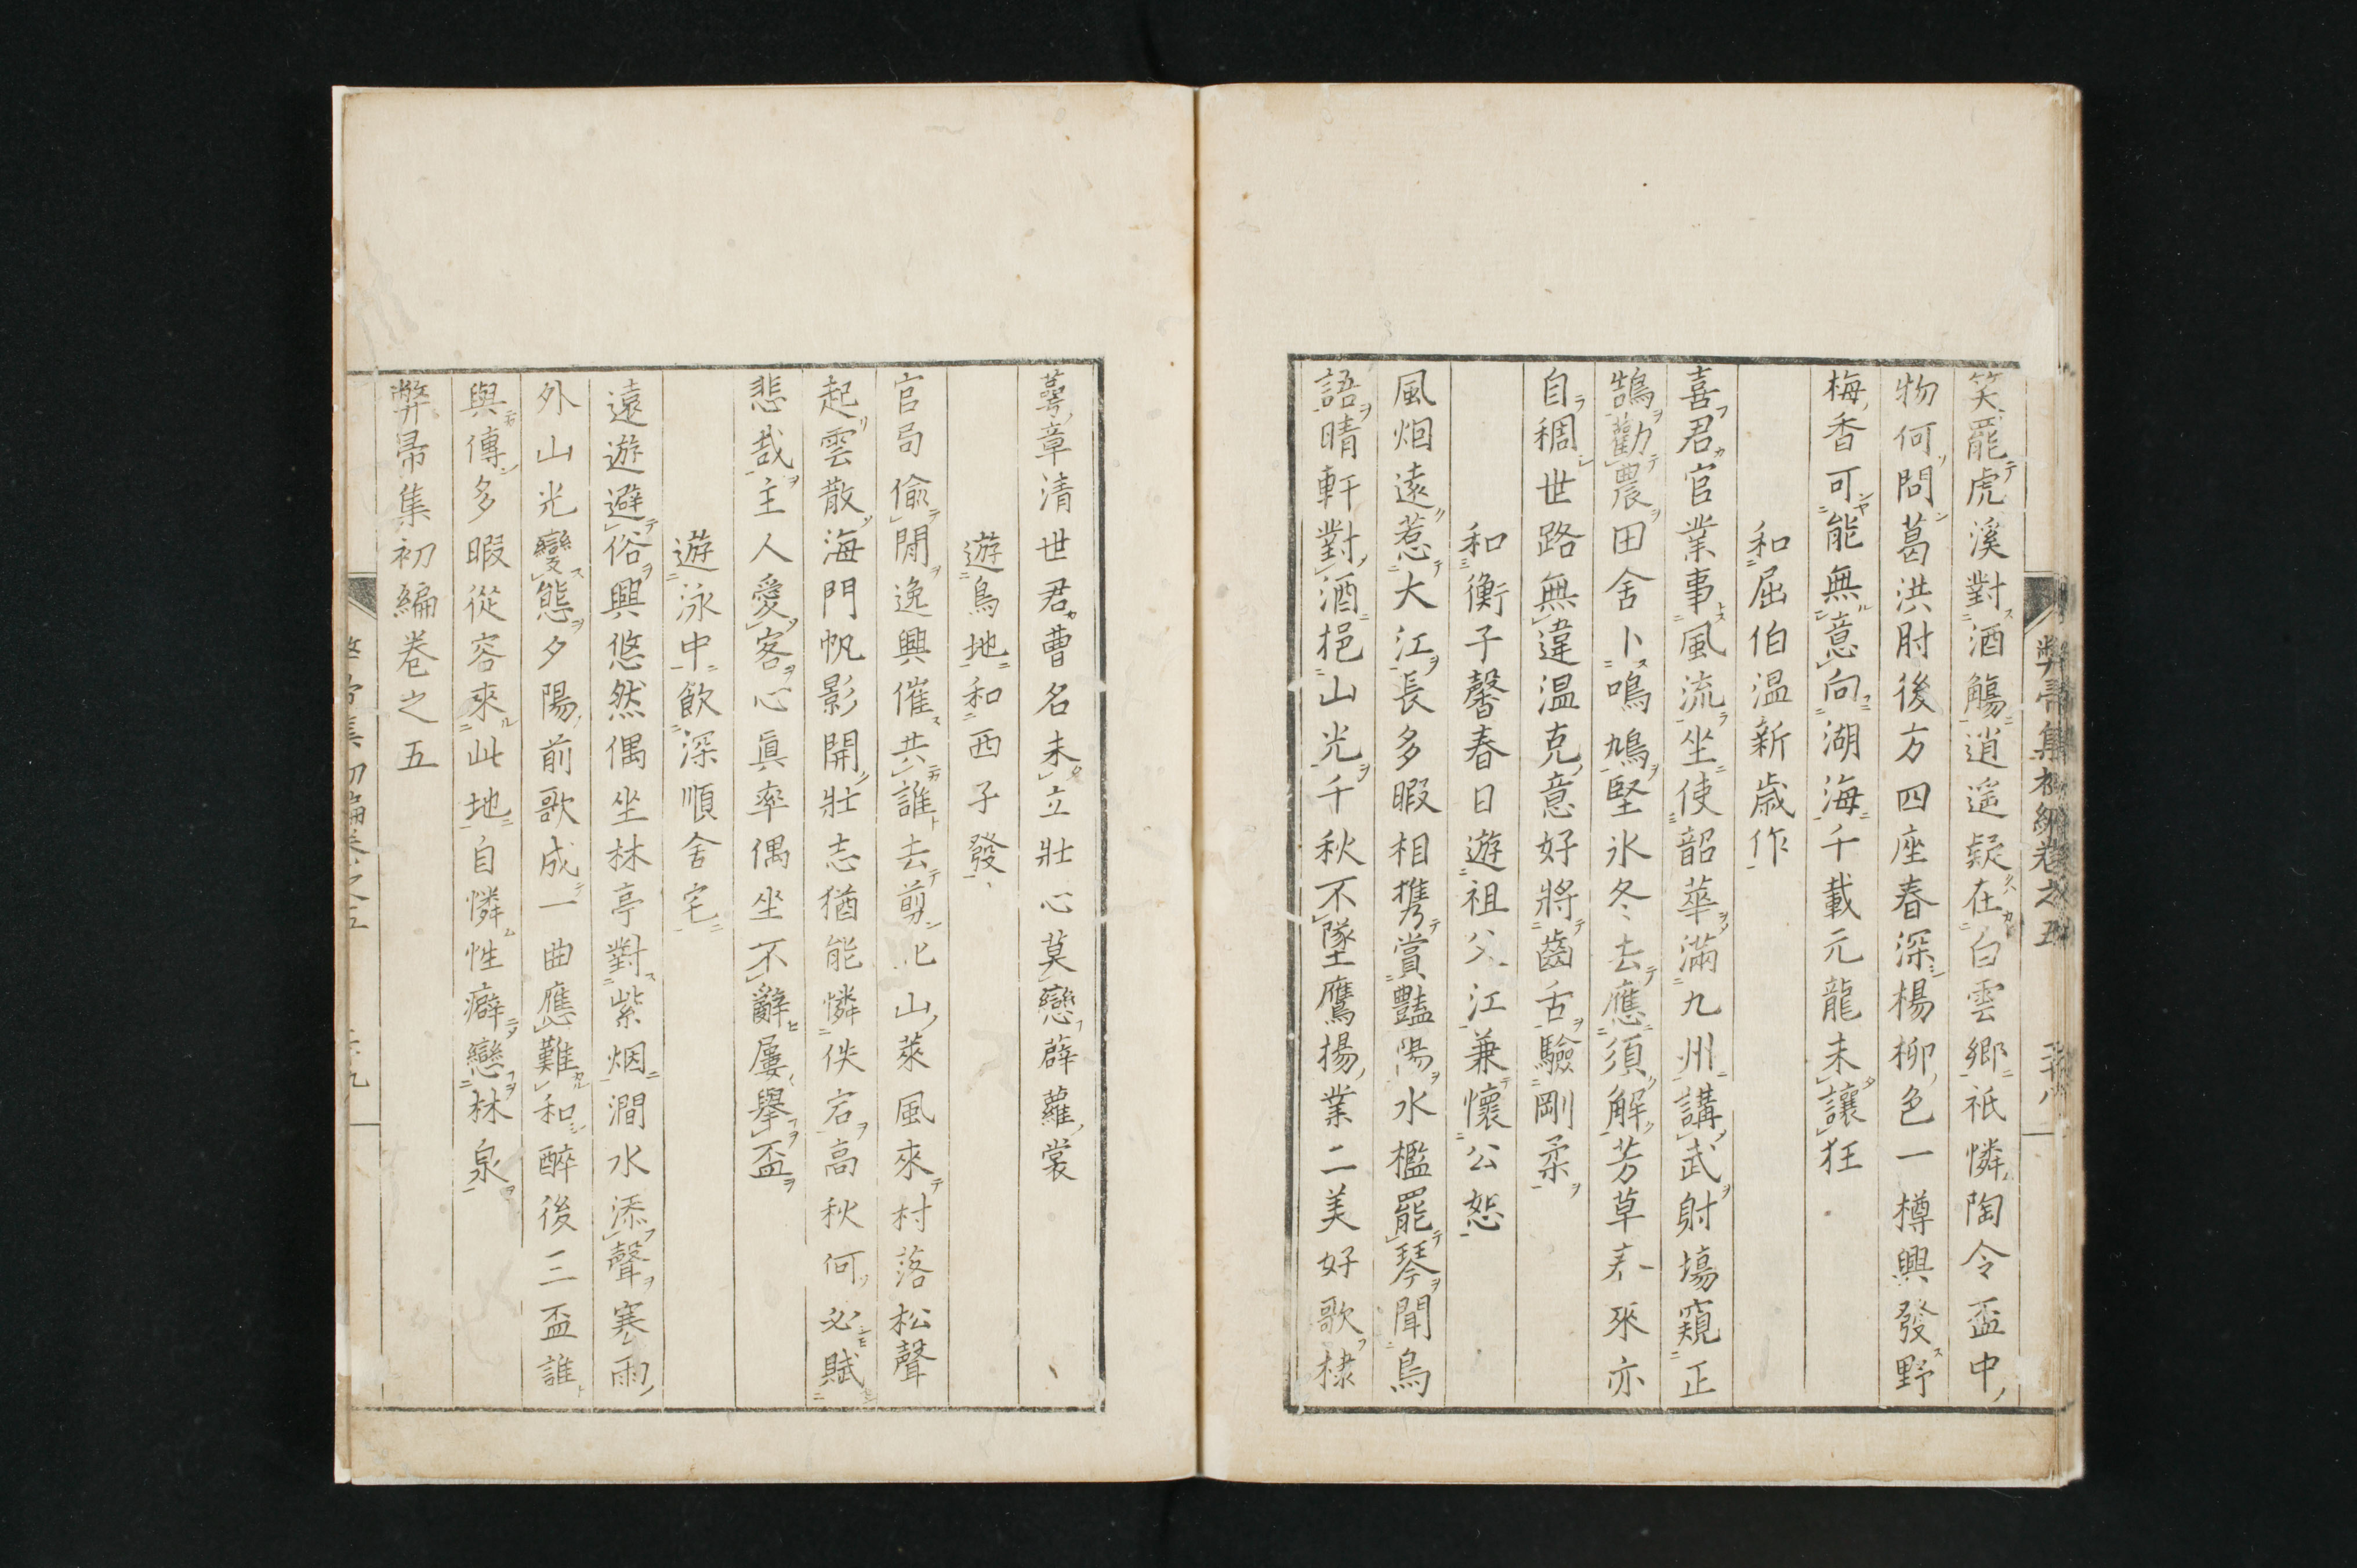 笑罷虎溪對酒觴逍遥疑在白雲郷祇憐陶令盃中
物何問葛洪肘後方四座春深楊柳色一樽興發野
梅香可能無意向湖海千載元龍未讓狂
和屈伯温新歳作
喜君官業事風流坐使韶華滿九州講武射塲窺正
鵠勸農田舎卜鳴鳩堅氷冬去應須解芳草春來亦
自稠世路無違温克意好將齒舌驗剛柔
和衡子馨春日遊祖父江兼懷公恕
風烟遠惹大江長多暇相携賞豔陽水檻罷琴聞鳥
語晴軒對酒挹山光千秋不墜鷹揚業二美好歌棣
萼章清世君曹名未立壯心莫戀薜蘿裳
遊鳥地和西子發
官局偸閒逸興催共誰去剪山萊風來村落松聲
起雲散海門帆影開壯志猶能憐佚宕高秋何必賦
悲哉主人愛客心眞率偶坐不辭屢擧盃
遊泳中飲深順舎宅
遠遊避俗興悠然偶坐林亭對紫烟澗水添聲寒雨
外山光變態夕陽前歌成一曲應難和醉後三盃誰
與傳多暇從容來此地自憐性癖戀林泉
弊帚集初編巻之五